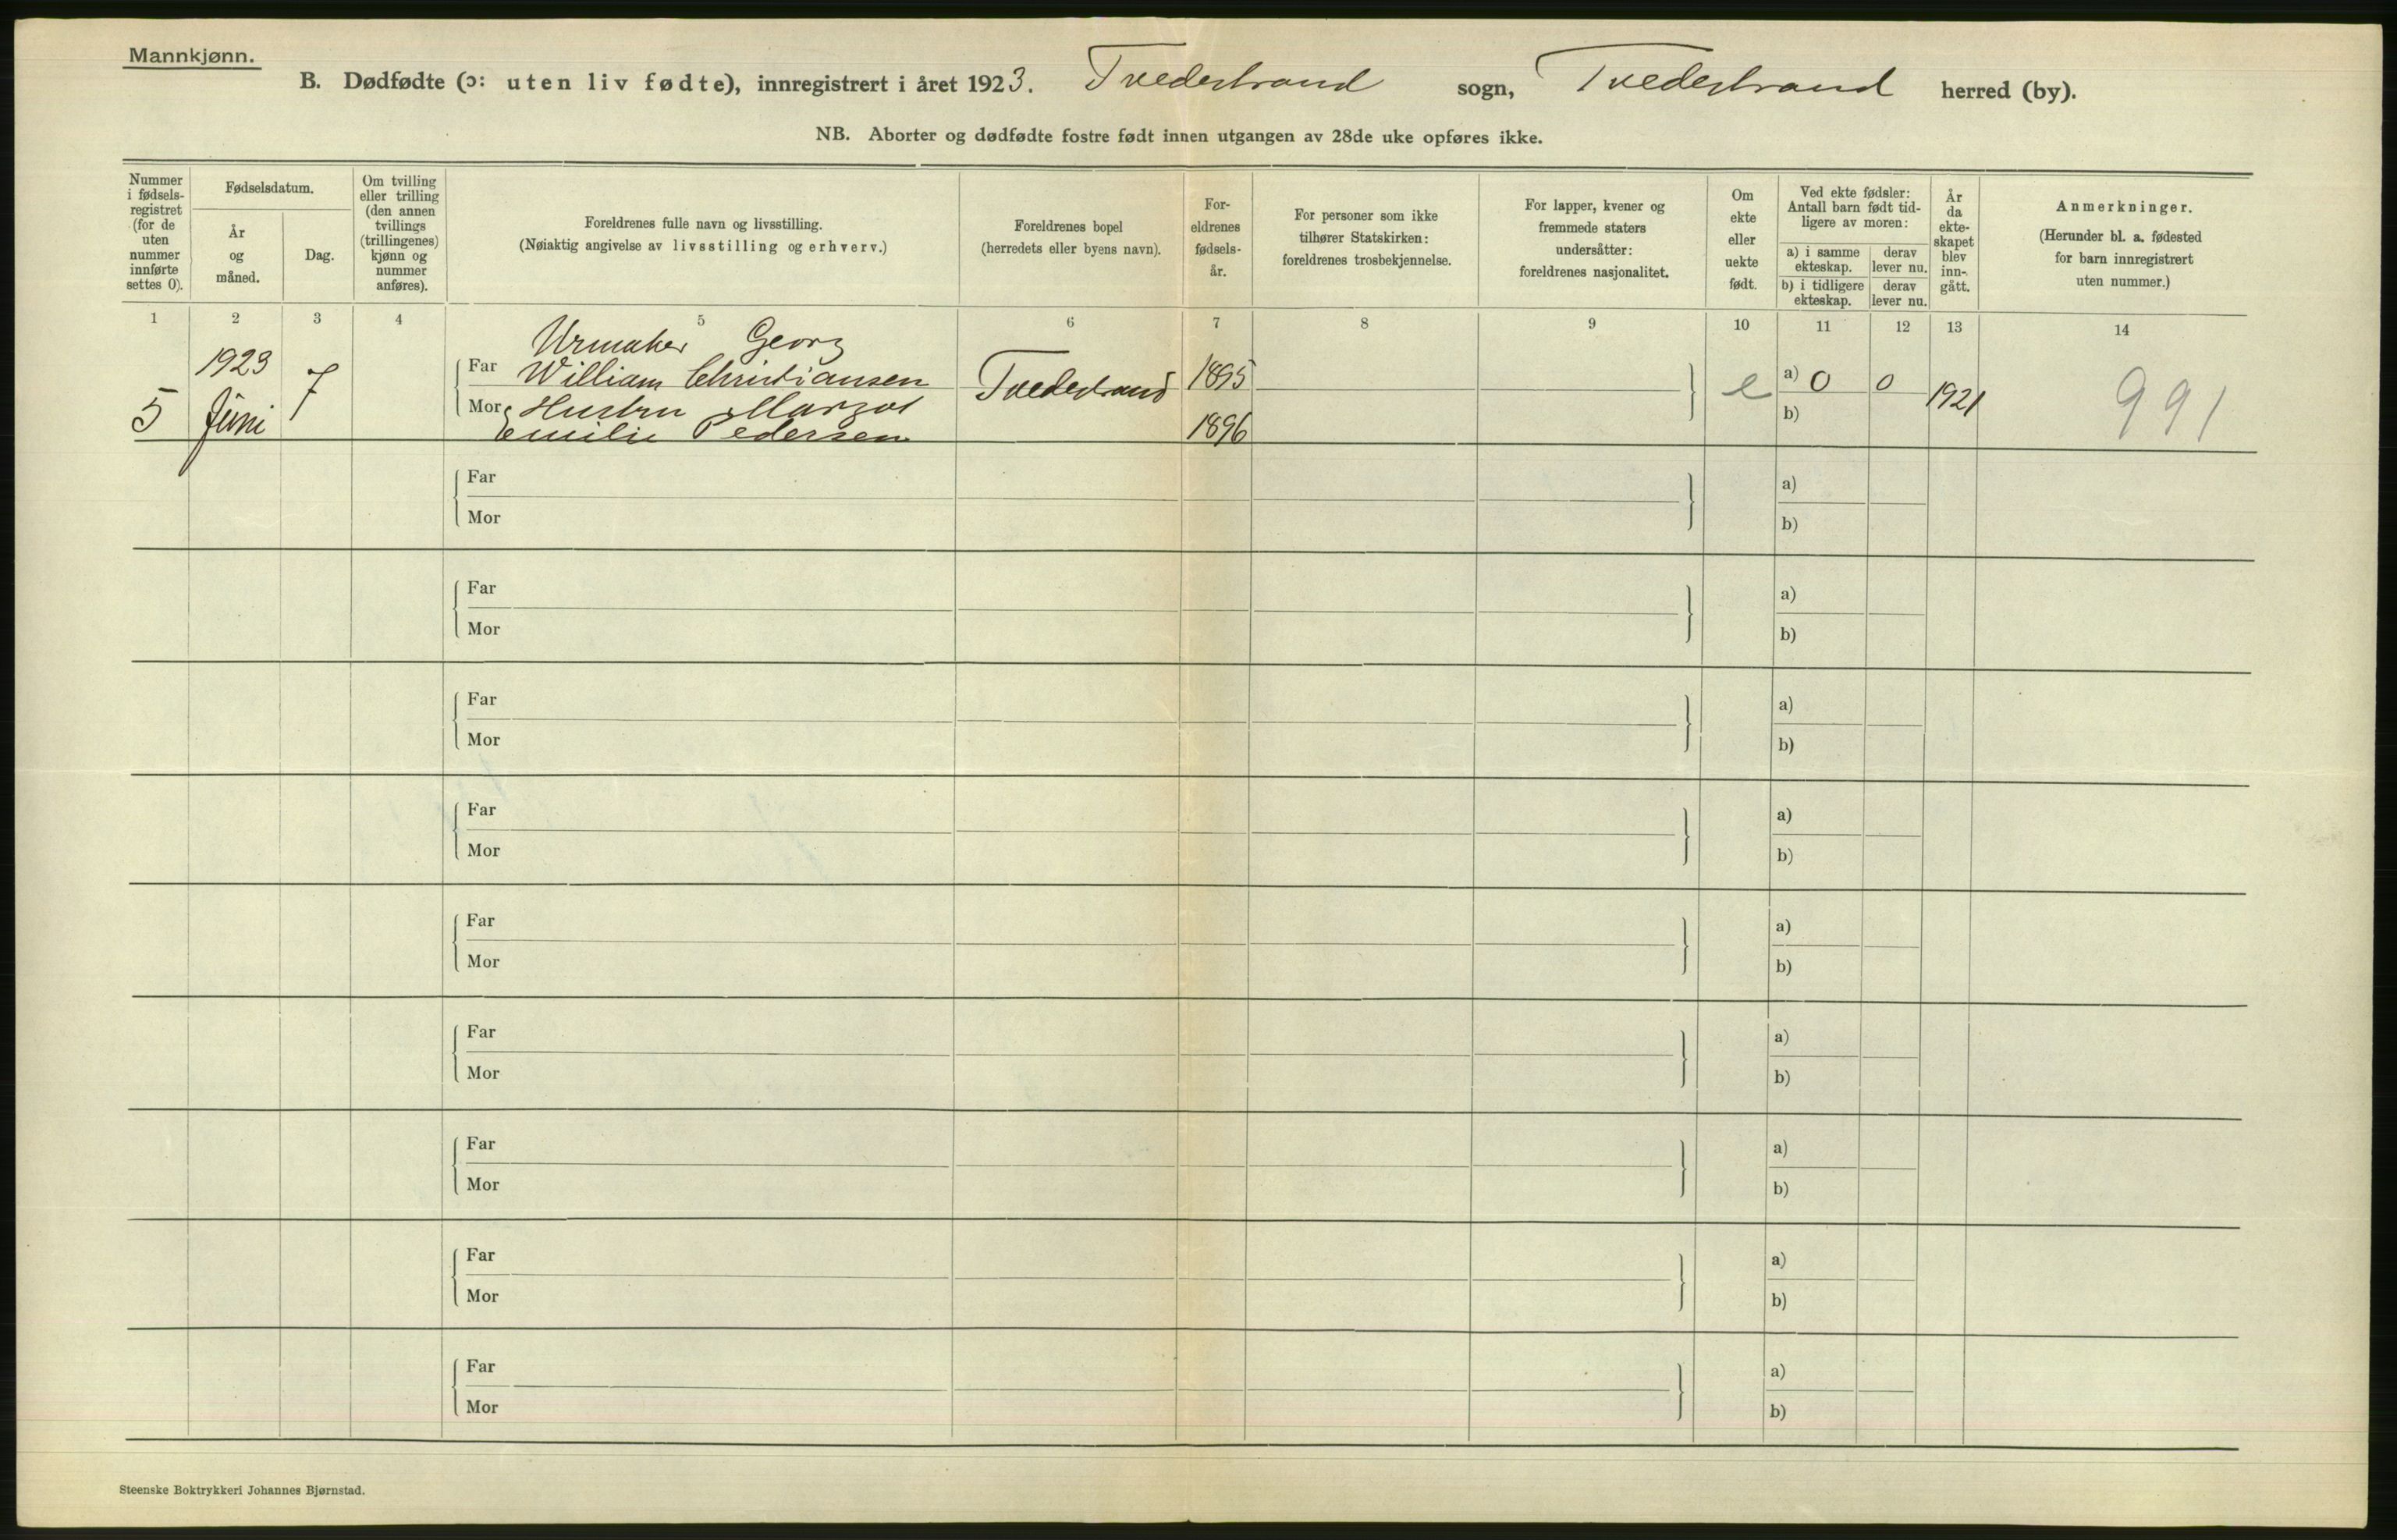 Mannkjønn.
B. Dødfødte (ɔ: uten liv fødte), innregistrert i året 1923. Tvedestrand sogn, Tvedestrand herred (by).
NB. Aborter og dødfødte fostre født innen utgangen av 28de uke opføres ikke.
Nummer
i fødsels-
registret
(for de
uten
nummer
innførte
settes 0).
Fødselsdatum.
År
og
måned.
Dag.
Om tvilling
eller trilling
(den annen
tvillings
(trillingenes)
kjønn og
nummer
anføres).
Foreldrenes fulle navn og livsstilling.
(Nøiaktig angivelse av livsstilling og erhverv.)
Foreldrenes bopel
(herredets eller byens navn).
For-
eldrenes
fødsels-
år.
For personer som ikke
tilhører Statskirken:
foreldrenes trosbekjennelse.
For lapper, kvener og
fremmede staters
undersåtter:
foreldrenes nasjonalitet.
Om
ekte
eller
uekte
født.
Ved ekte fødsler:
Antall barn født tid-
ligere av moren:
a) i samme
ekteskap.
derav
lever nu.
b) i tidligere
ekteskap.
derav
lever nu.
År
da
ekte-
skapet
blev
inn-
gått.
Anmerkninger.
(Herunder bl. a. fødested
for barn innregistrert
uten nummer.)
1 2 3 4 5 6 7 8 9 10 11 12 13 14
5
1923
Juni
7
Urmaker Georg
Far William Christiansen
Mor Hustru Margot
Emilie Pedersen
Tvedestrand
1895
1896
e
a) 0 0
b)
1921
991
Far a)
Mor b)
Far a)
Mor b)
Far a)
Mor b)
Far a)
Mor b)
Far a)
Mor b)
Far a)
Mor b)
Far a)
Mor b)
Far a)
Mor b)
Far a)
Mor b)
Steenske Boktrykkeri Johannes Bjørnstad.